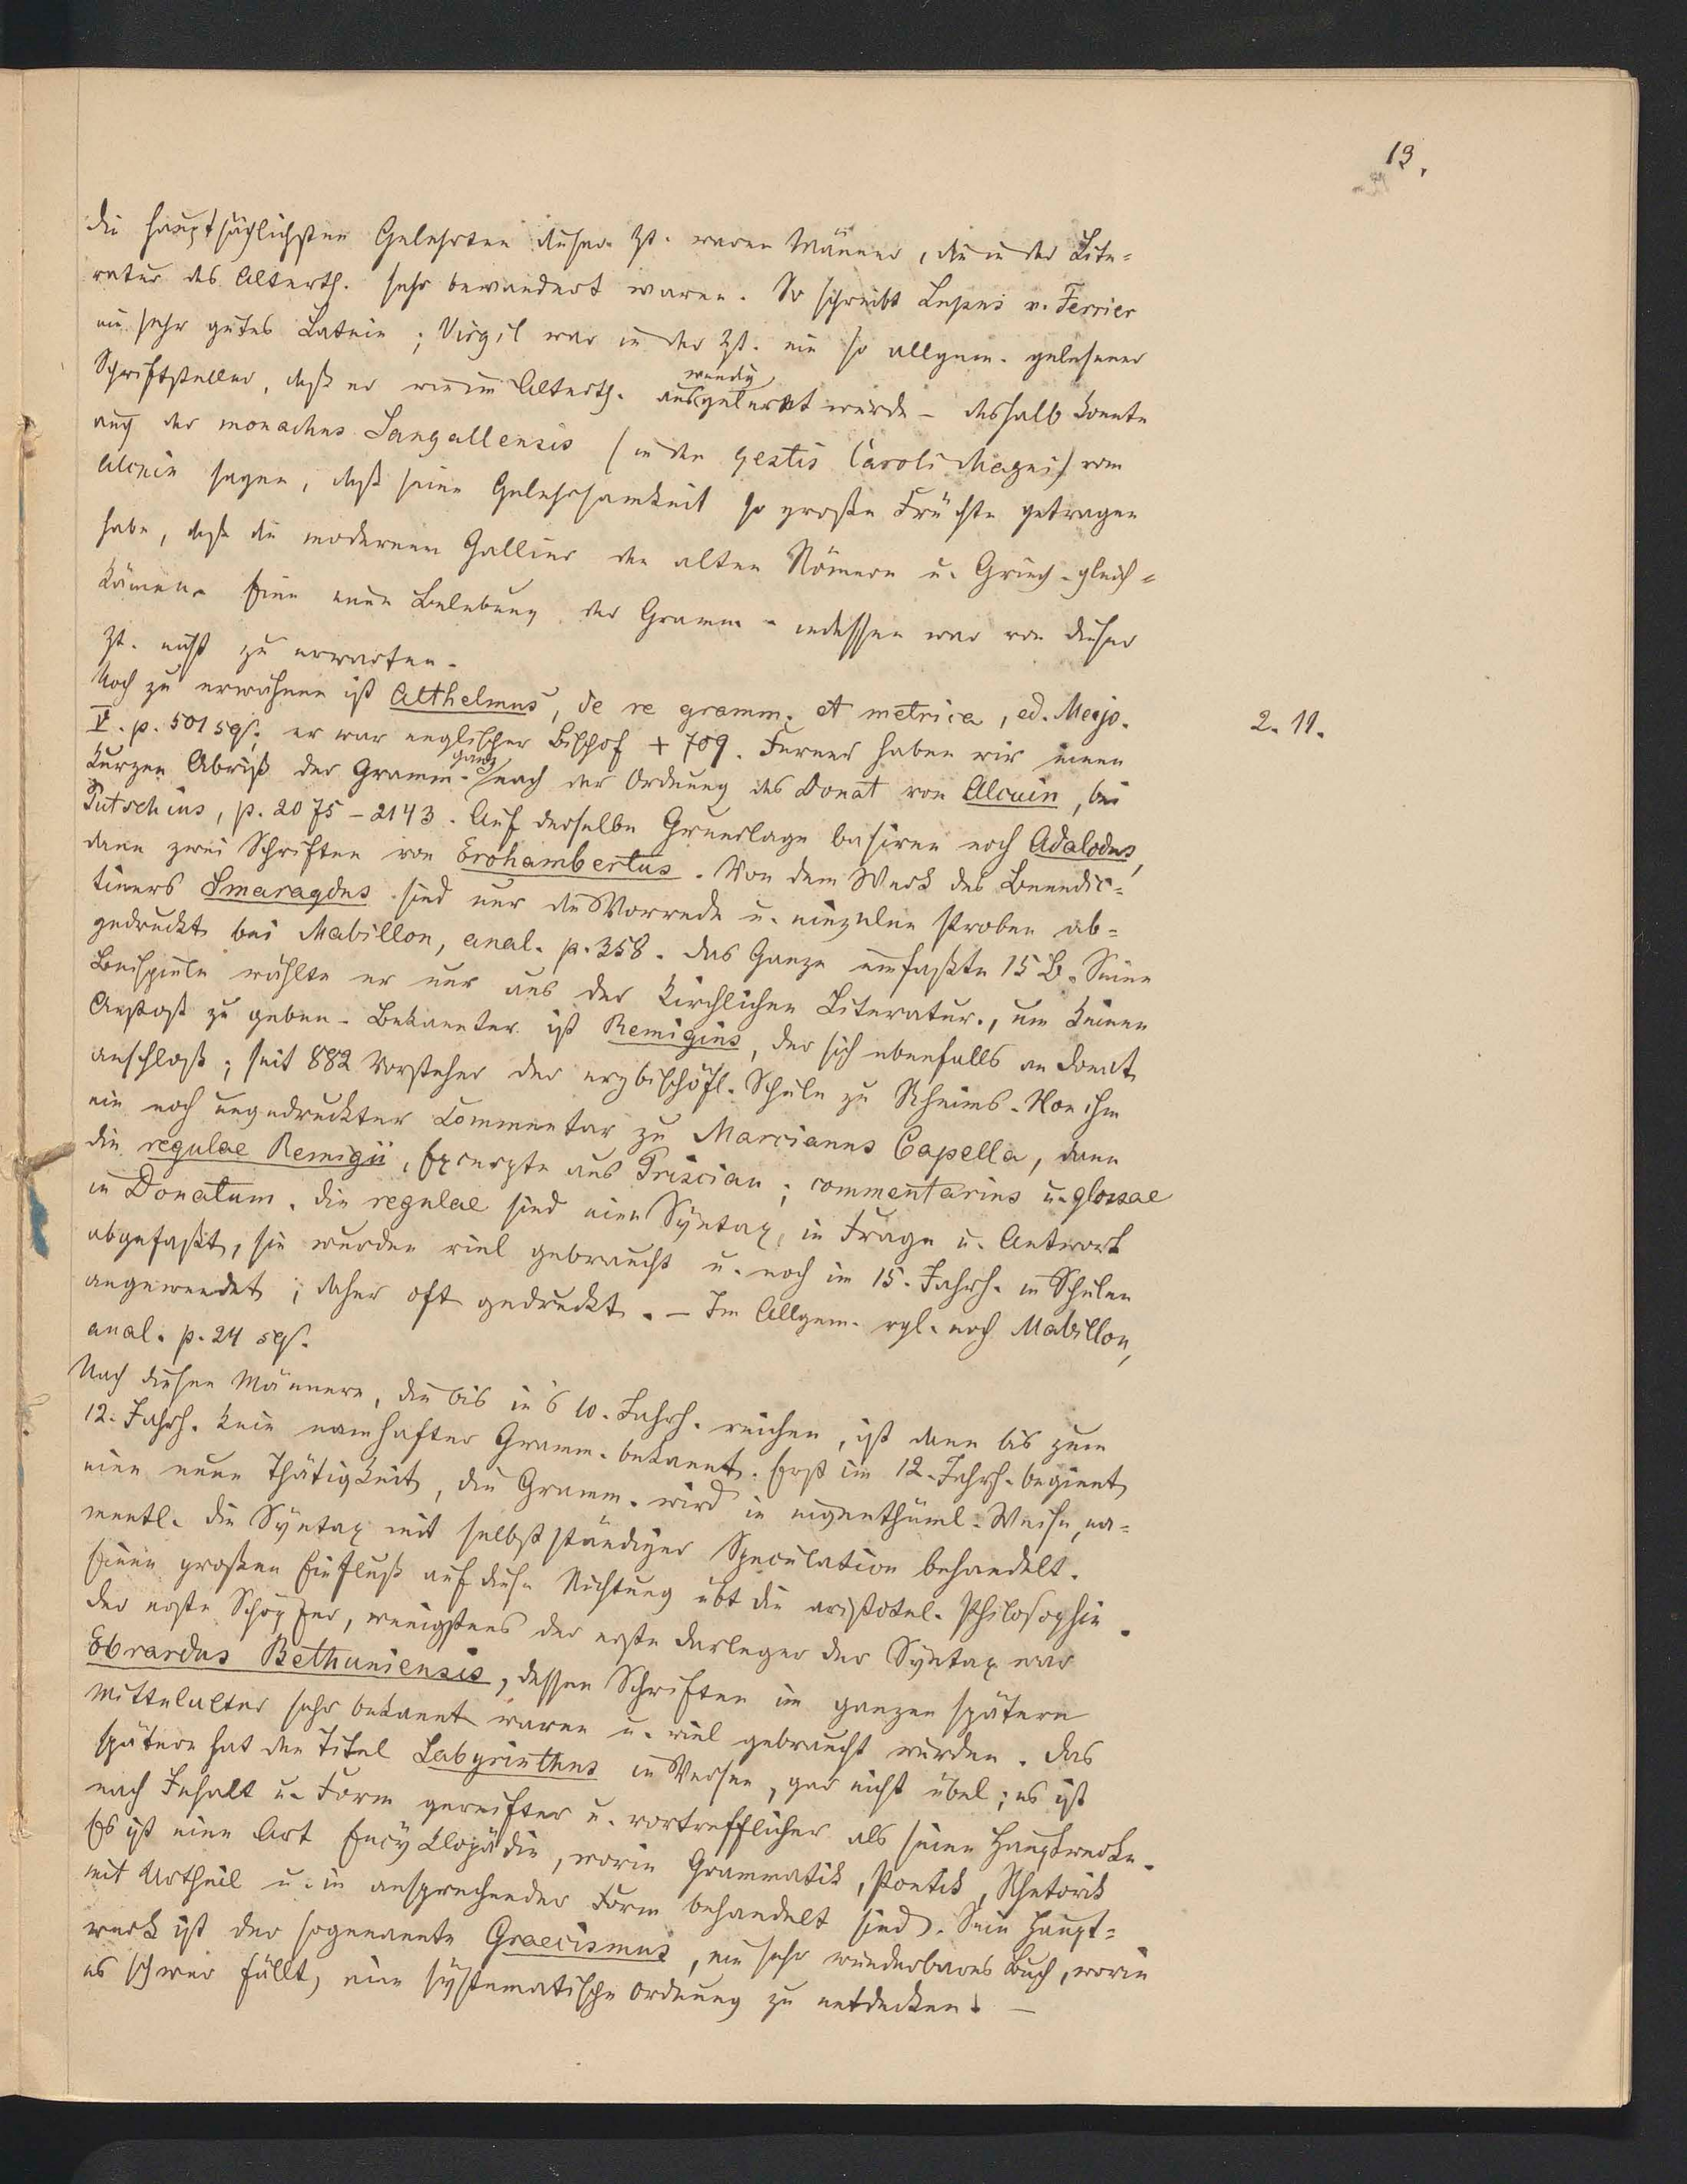 13.
die hauptsächlichsten Gelehrten dieser Zt. waren Männer, die in der Lite-
ratur des Alterth. sehr bewandert waren. So schreibt Lupus v. Ferrier
ein sehr gutes Latein; Virgil war in der Zt. ein so allgem. gelesener
Schriftsteller, daß er wie im Alterth. auswendig gelernt wurde – deshalb konnte
auch der monachus Sangallensis (in den gestis Caroli Magni) vom
Alcuin sagen, daß seine Gelehrsamkeit so große Früchte getragen
habe, daß die modernen Gallier den alten Römern u. Griech. gleich-
kämen. Eine neue Belebung der Gramm. indessen war von dieser
Zt. nicht zu erwarten.
Noch zu erwähnen ist Althelmus, de re gramm. et metrica, ed. Majo.
V. p. 501 sqs; er war englischer Bischof + 709. Ferner haben wir einen
2. 11.
kurzen Abriß der Gramm. ganz nach der Ordnung des Donat von Alcuin, bei
Putschius, p. 2075–2143. Auf derselben Grundlage basiren noch Adalodus,
dann zwei Schriften von Erchambertus. Von dem Werk des Benedic-
tiners Smaragdus sind nur die Vorrede u. einzelne Proben ab-
gedruckt bei Mabillon, anal. p. 358. Das Ganze umfaßte 15 B. Seine
Beispiele wählte er nur aus der kirchlichen Literatur, um keinen
Anstoß zu geben. Bekannter ist Remigius, der sich ebenfalls an Donat
anschloß; seit 882 Vorsteher der erzbischöfl. Schule zu Rheims. Von ihm
ein noch ungedruckter Commentar zu Marcianus Capella, dann
die regulae Remigii, Excerpte aus Priscian; commentarius u. glossae
in Donatum. Die regulae sind eine Syntax, in Frage u. Antwort
abgefaßt, sie wurden viel gebraucht u. noch im 15. Jahrh. in Schulen
angewendet; daher oft gedruckt. – Im Allgem. vgl. noch Mabillon,
anal. p. 24 sqs.
Nach diesen Männern, die bis in's 10. Jahrh. reichen, ist dann bis zum
12. Jahrh. kein namhafter Gramm. bekannt. Erst im 12. Jahrh. beginnt
eine neue Thätigkeit, die Gramm. wird in eigenthüml. Weise, na-
mentl. die Syntax mit selbstständiger Speculation behandelt.
Einen großen Einfluß auf diese Richtung übt die aristotel. Philosophie.
Der erste Schöpfer, wenigstens der erste Darleger der Syntax war
Ebrardus Bethuniensis, dessen Schriften im ganzen spätern
Mittelalter sehr bekannt waren u. viel gebraucht wurden. Das
spätere hat den Titel Labyrinthus in Versen, gar nicht übel; es ist
nach Inhalt u. Form gereifter u. vortrefflicher als seine Hauptwerke.
Es ist eine Art Encyklopädie, worin Grammatik, Poetik, Rhetorik
mit Urtheil u. in ansprechender Form behandelt sind. Sein Haupt-
werk ist der sogenannte Graecismus, ein sehr wunderbares Buch, worin
es schwer fällt, eine systematische Ordnung zu entdecken. –